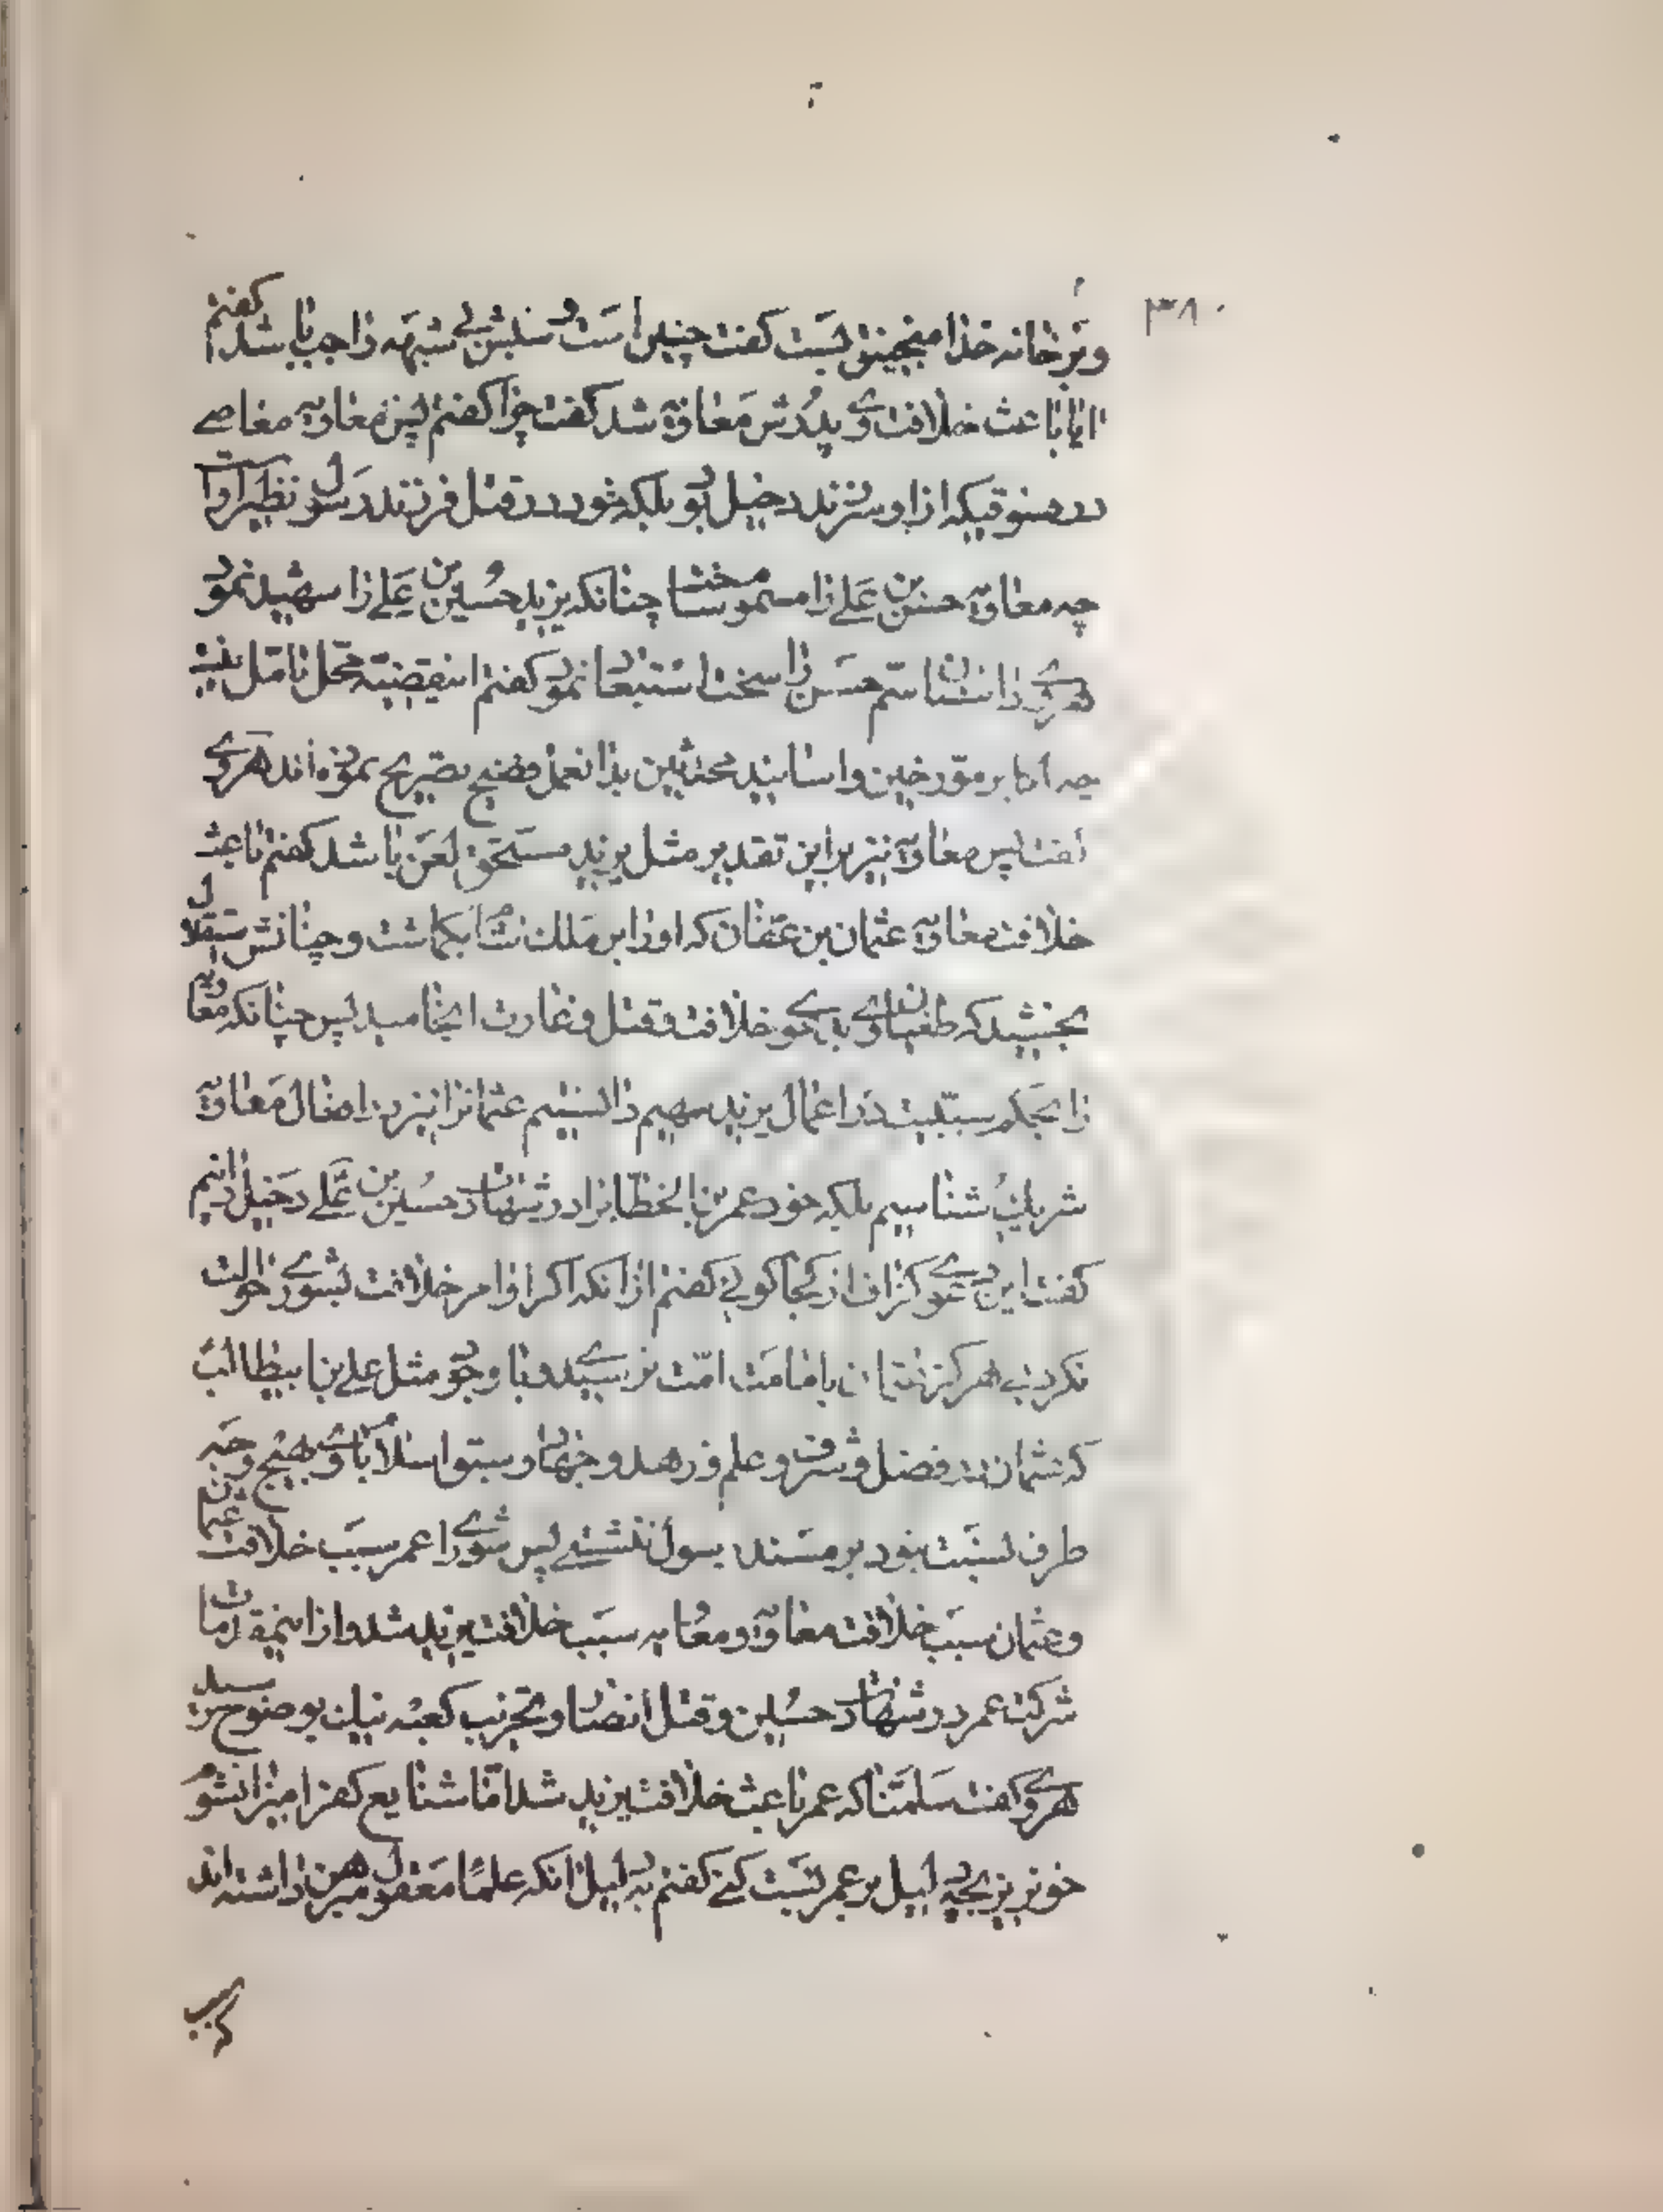 ۳۸۰
و بر خانه خدا منجنیق بست گفت چنین است و سبش بی شبهه واجب باشد گفتم
ایا باعث خلافت وی پدرش معاویه شد گفت چرا گفتم پس معاویه معاصی
در هر فسوقیکه از او سر زند دخیل بود بلکه خود در قتل فرزند رسول نظیر او است
چه معاویه حسن بن علی را مسموم ساخت چنانکه یزید حسین بن علی را شهید نمود
هروی داستان سم حسن را سخت استبعاد نمود گفتم اینقضیه محل تامل نیست
چه اکابر مورخین و اسانید محدثین بدانعمل فضیح تصریح نموده‌اند هروی
گفت پس معاویه نیز بر این تقدیر مثل یزید مستحق لعن باشد گفتم باعث
خلافت معاویه عثمان بن عفان که او را بر ملک شام بگماشت و چنانش استقلال
بخشید که طغیان وی بدعوی خلافت و قتل و غارت انجامید پس چنانکه معاویه
را بحکم سببیت در اعمال یزید سهیم دانستیم عثمانرا نیز در افعال معاویه
شریک شناسیم بلکه خود عمر بن الخطابرا در شهادت حسین بن علی دخیل دانیم
گفت این دعوی گزاف از کجا گوئی گفتم از آنکه اگر او امر خلافت بشوری حوالت
نکردی هرگز عثمان بامامت امت نرسیدی و با وجود مثل علی بن ابیطالب
که عثمان در فضل و شرف و علم و زهد و جهاد و سبق اسلام با وی بهیچ وجه
طرف نسبت نبود بر مسند رسول ننشستی پس شوری را عمر سبب خلافت عثمان
و عثمان سبب خلافت معاویه و معاویه سبب خلافت یزید شد و از اینمقدمات
شرکت عمر در شهادت حسین و قتل انصار و تخریب کعبه نیک بوضوح رسید
هروی گفت سلمنا که عمر باعث خلافت یزید شد اما شنایع کفر امیز انشوم
خونریز بچه دلیل بر عمر ثبت کنی گفتم بدلیل آنکه علما معقول مبرهن داشته‌اند
که سبب